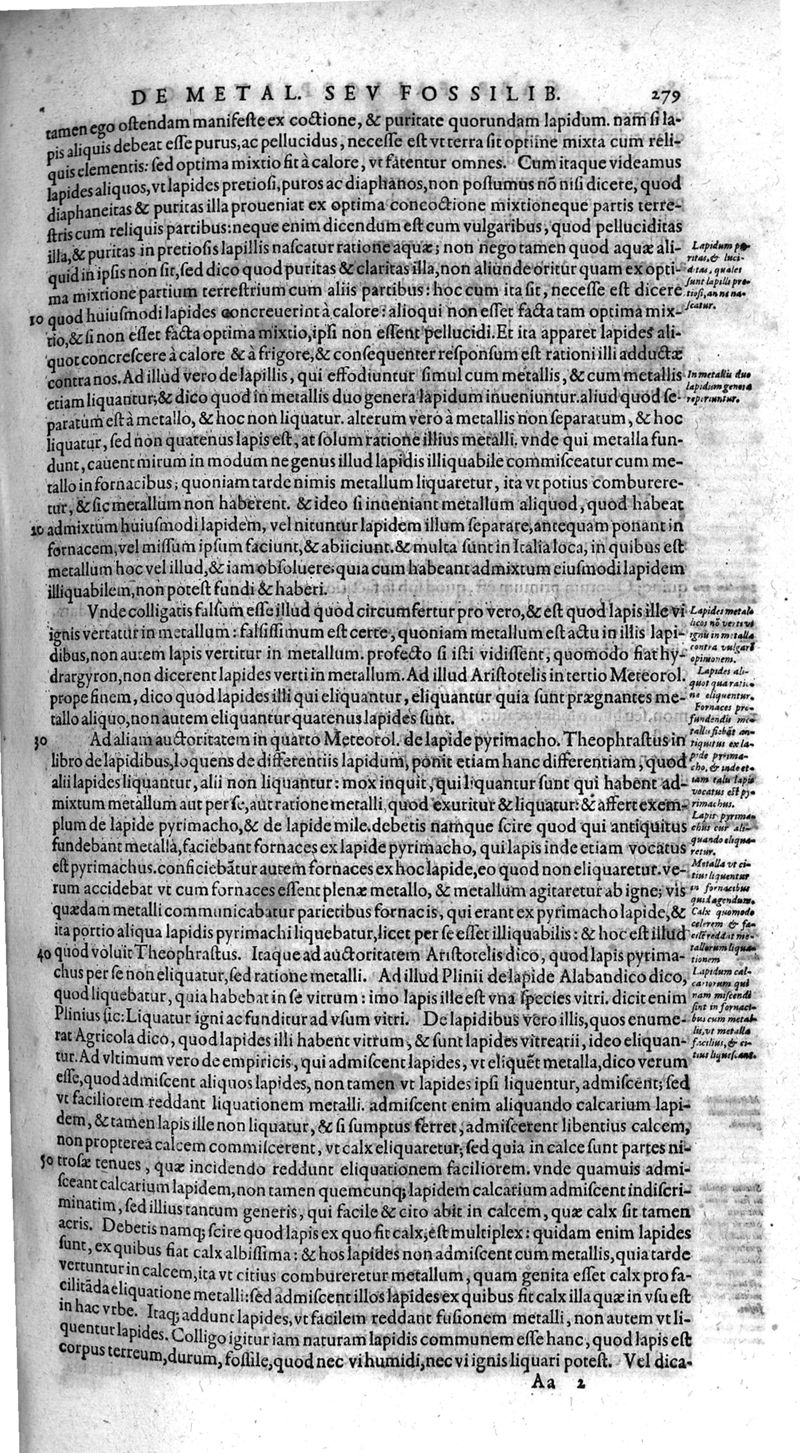 DE METAL. SEV FOSSILIB. 279
tamen ego oſtendam manifeſte ex coctione, & puritate quorundam lapidum. nam ſi la-
pis aliquis debeat eſſe purus, ac pellucidus, neceſſe eſt vt terra ſit optime mixta cum reli-
quis elementis: ſed optima mixtio fit à calore, vt fatentur omnes. Cum itaque videamus
lapides aliquos, vt lapides pretioſi, puros ac diaphanos, non poſtumus nō niſi dicere, quod
diaphaneitas & puritas illa proueniat ex optima concoctione mixtioneque partis terre-
ſtris cum reliquis partibus: neque enim dicendum eſt cum vulgaribus, quod pelluciditas
illa, & puritas in pretioſis lapillis naſcatur ratione aquæ; non nego tamen quod aquæ ali-
quid in ipſis non ſit, ſed dico quod puritas & claritas illa, non aliunde oritur quam ex opti-
ma mixtione partium terreſtrium cum aliis partibus: hoc cum ita ſit, neceſſe eſt dicere
10 quod huiuſmodi lapides concreuerint à calore: alioqui non eſſet facta tam optima mix-
tio, & ſi non eſſet facta optima mixtio, ipſi non eſſent pellucidi. Et ita apparet lapides ali-
quot concreſcere à calore & à frigore, & conſequenter reſponſum eſt rationi illi adductæ
contra nos. Ad illud vero de lapillis, qui effodiuntur ſimul cum metallis, & cum metallis
etiam liquantur; & dico quod in metallis duo genera lapidum inueniuntur. aliud quod ſe-
paratum eſt à metallo, & hoc non liquatur. alterum vero à metallis non ſeparatum, & hoc
liquatur, ſed non quatenus lapis eſt, at ſolum ratione illius metalli. vnde qui metalla fun-
dunt, cauent mirum in modum ne genus illud lapidis illiquabile commiſceatur cum me-
tallo in fornacibus; quoniam tarde nimis metallum liquaretur, ita vt potius comburere-
tur, & ſic metallum non haberent. & ideo ſi inueniant metallum aliquod, quod habeat
20 admixtum huiuſmodi lapidem, vel nituntur lapidem illum ſeparare, antequam ponant in
fornacem, vel miſſum ipſum faciunt, & abiiciunt. & multa ſunt in Italia loca, in quibus eſt
metallum hoc vel illud, & iam obſoluere; quia cum habeant admixtum eiuſmodi lapidem
illiquabilem, non poteſt fundi & haberi.
Vnde colligatis falſum eſſe illud quod circumfertur pro vero, & eſt quod lapis ille vi
ignis vertatur in metallum: falſiſſimum eſt certe, quoniam metallum eſt actu in illis lapi-
dibus, non autem lapis vertitur in metallum. profecto ſi iſti vidiſſent, quomodo fiat hy-
drargyron, non dicerent lapides verti in metallum. Ad illud Ariſtotelis in tertio Meteorol.
prope finem, dico quod lapides illi qui eliquantur, eliquantur quia ſunt prægnantes me-
tallo aliquo, non autem eliquantur quatenus lapides ſunt.
30 Ad aliam auctoritatem in quarto Meteorol. de lapide pyrimacho. Theophraſtus in
libro de lapidibus, loquens de differentiis lapidum, ponit etiam hanc differentiam, quod
alii lapides liquantur, alii non liquantur: mox inquit, qui liquantur ſunt qui habent ad-
mixtum metallum aut per ſe, aut ratione metalli quod exuritur & liquatur: & affert exem-
plum de lapide pyrimacho, & de lapide mile. debetis namque ſcire quod qui antiquitus
fundebant metalla, faciebant fornaces ex lapide pyrimacho, qui lapis inde etiam vocatus
eſt pyrimachus. conficiebātur autem fornaces ex hoc lapide, eo quod non eliquaretur. ve-
rum accidebat vt cum fornaces eſſent plenæ metallo, & metallum agitaretur ab igne; vis
quædam metalli communicabatur parietibus fornacis, qui erant ex pyrimacho lapide, &
ita portio aliqua lapidis pyrimachi liquebatur, licet per ſe eſſet illiquabilis: & hoc eſt illud
40 quod voluit Theophraſtus. Itaque ad auctoritatem Ariſtotelis dico, quod lapis pyrima-
chus per ſe non eliquatur, ſed ratione metalli. Ad illud Plinii de lapide Alabandico dico,
quod liquebatur, quia habebat in ſe vitrum: imo lapis ille eſt vna ſpecies vitri. dicit enim
Plinius ſic: Liquatur igni ac funditur ad vſum vitri. De lapidibus vero illis, quos enume-
rat Agricola dico, quod lapides illi habent vitrum, & ſunt lapides vitrearii, ideo eliquan-
tur. Ad vltimum vero de empiricis, qui admiſcent lapides, vt eliquēt metalla, dico verum
eſſe, quod admiſcent aliquos lapides, non tamen vt lapides ipſi liquentur, admiſcent; ſed
vt faciliorem reddant liquationem metalli. admiſcent enim aliquando calcarium lapi-
dem, & tamen lapis ille non liquatur, & ſi ſumptus ferret, admiſcerent libentius calcem,
non propterea calcem commiſcerent, vt calx eliquaretur; ſed quia in calce ſunt partes ni-
50 troſæ tenues, quæ incidendo reddunt eliquationem faciliorem. vnde quamuis admi-
ſceant calcarium lapidem, non tamen quemcunq; lapidem calcarium admiſcent indiſcri-
minatim, ſed illius tantum generis, qui facile & cito abit in calcem, quæ calx ſit tamen
acris. Debetis namq; ſcire quod lapis ex quo fit calx, eſt multiplex: quidam enim lapides
ſunt, ex quibus fiat calx albiſſima: & hos lapides non admiſcent cum metallis, quia tarde
vertuntur in calcem, ita vt citius combureretur metallum, quam genita eſſet calx pro fa-
cilitāda eliquatione metalli: ſed admiſcent illos lapides ex quibus fit calx illa quæ in vſu eſt
in hac vrbe. Itaq; addunt lapides, vt facilem reddant fuſionem metalli, non autem vt li-
quentur lapides. Colligo igitur iam naturam lapidis communem eſſe hanc, quod lapis eſt
corpus terreum, durum, foſſile, quod nec vi humidi, nec vi ignis liquari poteſt. Vel dica-
Aa 2
Lapidum pu-
ritas, & luci-
ditas, quales
ſunt lapilli pre-
tioſi, an na-
ſcatur.
In metallis duo
lapidum genera
reperiuntur.
Lapides metal-
licos nō verti vi
ignis in metalla
contra vulgarē
opinionem.
Lapides ali-
quot qua ratio-
ne eliquentur.
Fornaces pro
fundendis me-
tallis fiebāt an-
tiquitus ex la-
pide pyrima-
cho, & inde et-
iam talis lapis
vocatus eſt py-
rimachus.
Lapis pyrima-
chus cur ali-
quando eliqua-
retur.
Metalla vt ci-
tius liquentur
in fornacibus
quid agendum.
Calx quomodo
celerem & fa-
cilē reddat me-
tallorum liqua-
tionem
Lapidum cal-
cariorum qui
nam miſcendi
ſint in fornaci-
bus cum metal-
lis, vt metalla
facilius, & ci-
tius liqueſcant.